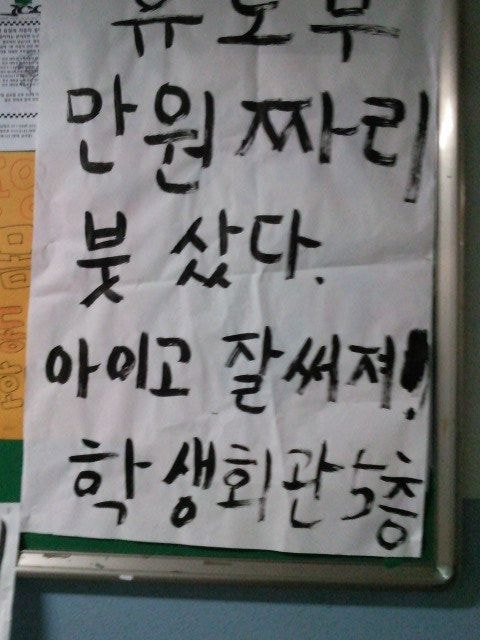 유도부
만원짜리
붓 샀다.
아이고 잘써져!
학생회관 5층